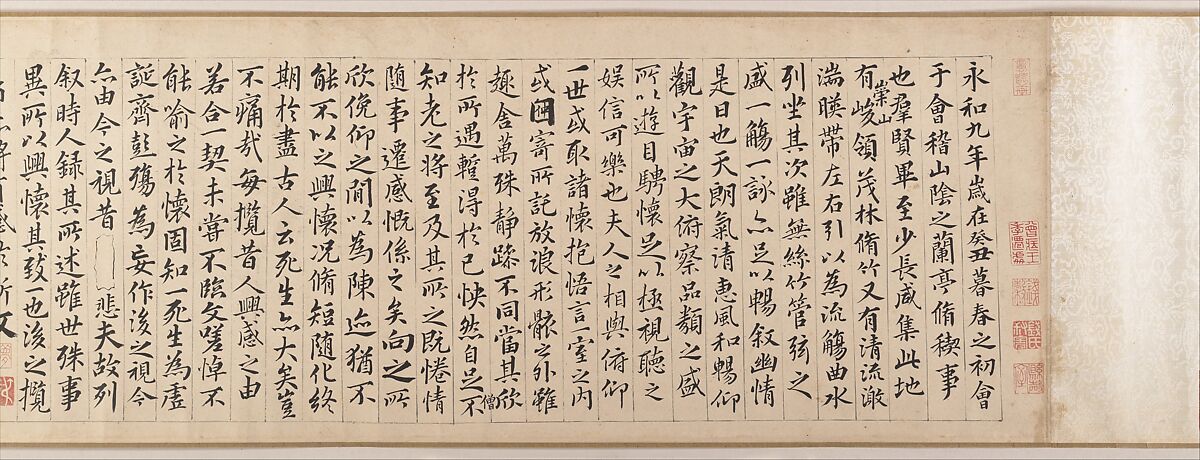 永和九年歲在癸丑暮春之初會
于會稽山陰之蘭亭脩稧事
也羣賢畢至少長咸集此地
有崇山峻領茂林脩竹又有清流激
湍暎帶左右引以為流觴曲水
列坐其次雖無絲竹管弦之
盛一觴一詠亦足以暢叙幽情
是日也天朗氣清惠風和暢仰
觀宇宙之大俯察品類之盛
所以遊目騁懷足以極視聽之
娛信可樂也夫人之相與俯仰
一世或取諸懷抱悟言一室之內
或因寄所託放浪形骸之外雖
趣舍萬殊靜躁不同當其欣
於所遇蹔得於己怏然自足不
僧
知老之將至及其所之既惓情
隨事遷感慨係之矣向之所
欣俛仰之閒以為陳迹猶不
能不以之興懷況脩短隨化終
期於盡古人云死生亦大矣豈
不痛哉每攬昔人興感之由
若合一契未嘗不臨文嗟悼不
能喻之於懷固知一死生為虛
誕齊彭殤為妄作後之視今
亦由今之視昔悲夫故列
叙時人録其所述雖世殊事
異所以興懷其致一也後之攬
文